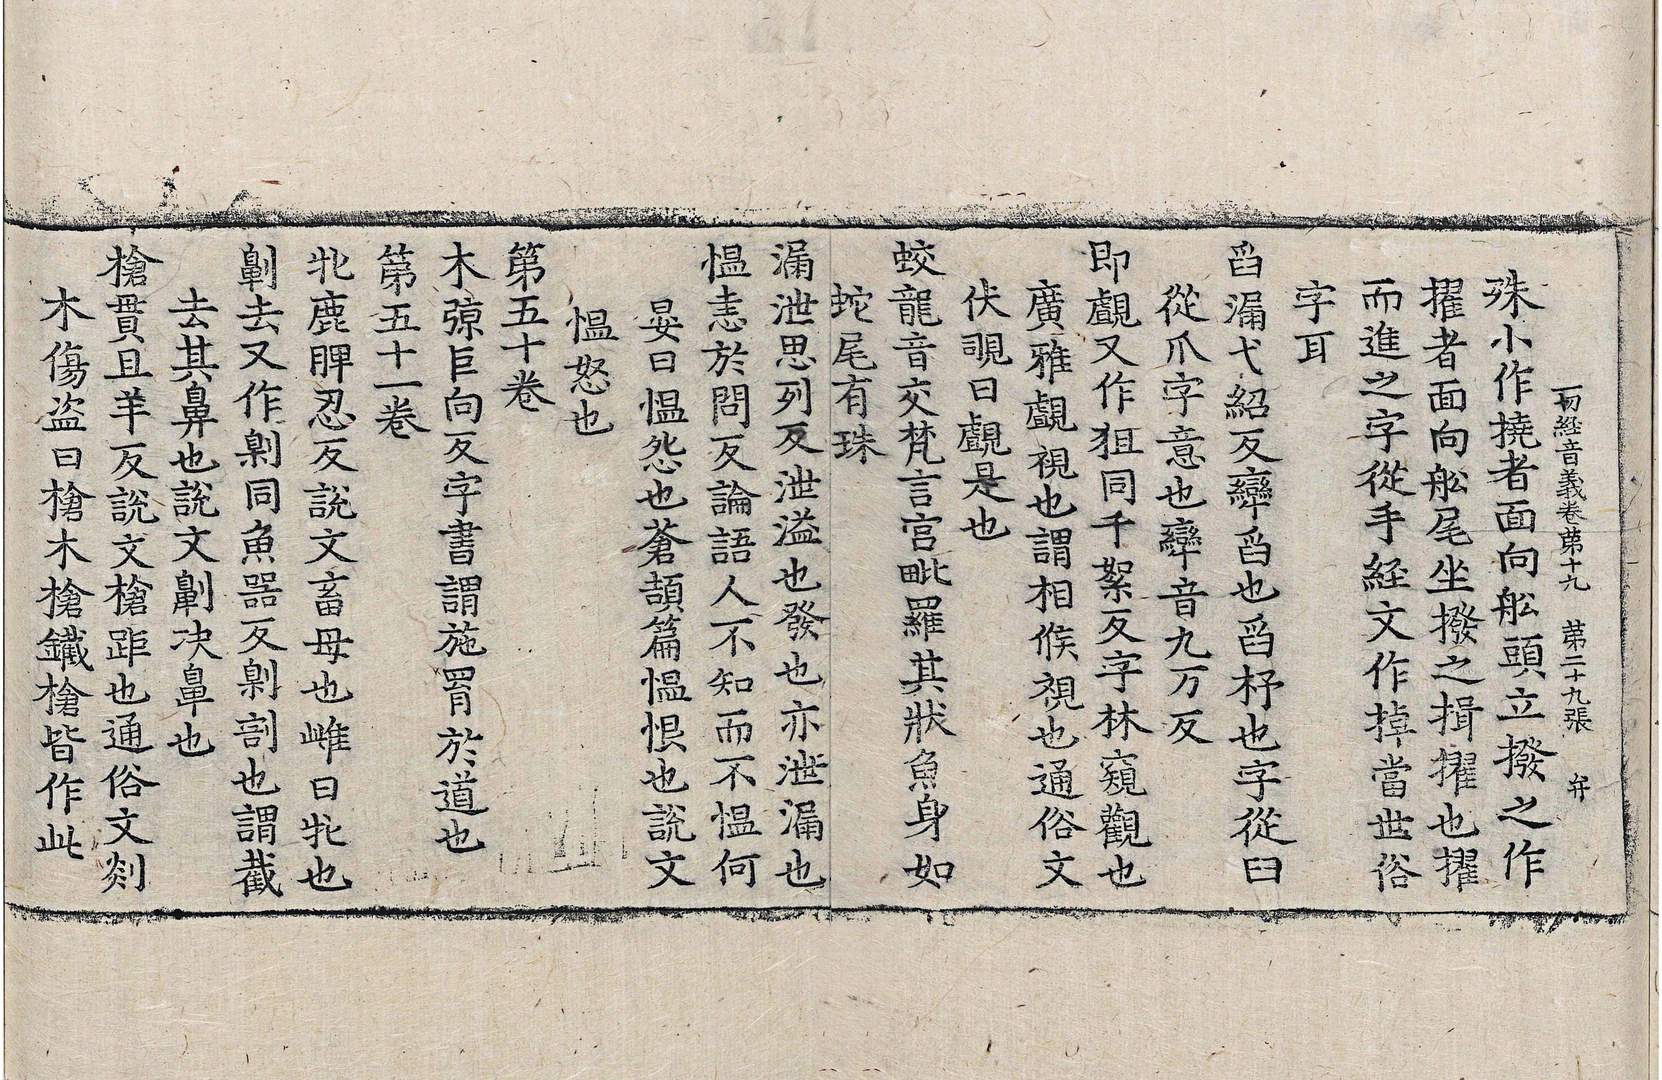 一切經音義卷第十九　第二十九張　弁
殊小作撓者面向舩頭立撥之作
擢者面向舩尾坐撥之揖擢也擢
而進之字從手経文作掉當世俗
字耳
舀漏弋紹反䜌舀也舀杼也字從臼
從爪字意也䜌音九万反
即覰又作狙同千絮反字林窺觀也
廣雅覰視也謂相候視也通俗文
伏覗曰覰是也
蛟龍音交梵言宮毗羅其狀魚身如
蛇尾有珠
漏泄思列反泄溢也發也亦泄漏也
愠恚於問反論語人不知而不愠何
晏曰愠怨也蒼頡篇愠恨也說文
愠怒也
第五十卷
木弶巨向反字書謂施罥於道也
第五十一卷
牝鹿脾忍反說文畜母也雌曰牝也
劓去又作劓同魚器反劓割也謂截
去其鼻也說文劓决鼻也
槍貫且羊反說文槍距也通俗文剡
木傷盗曰槍木槍鐵槍皆作此